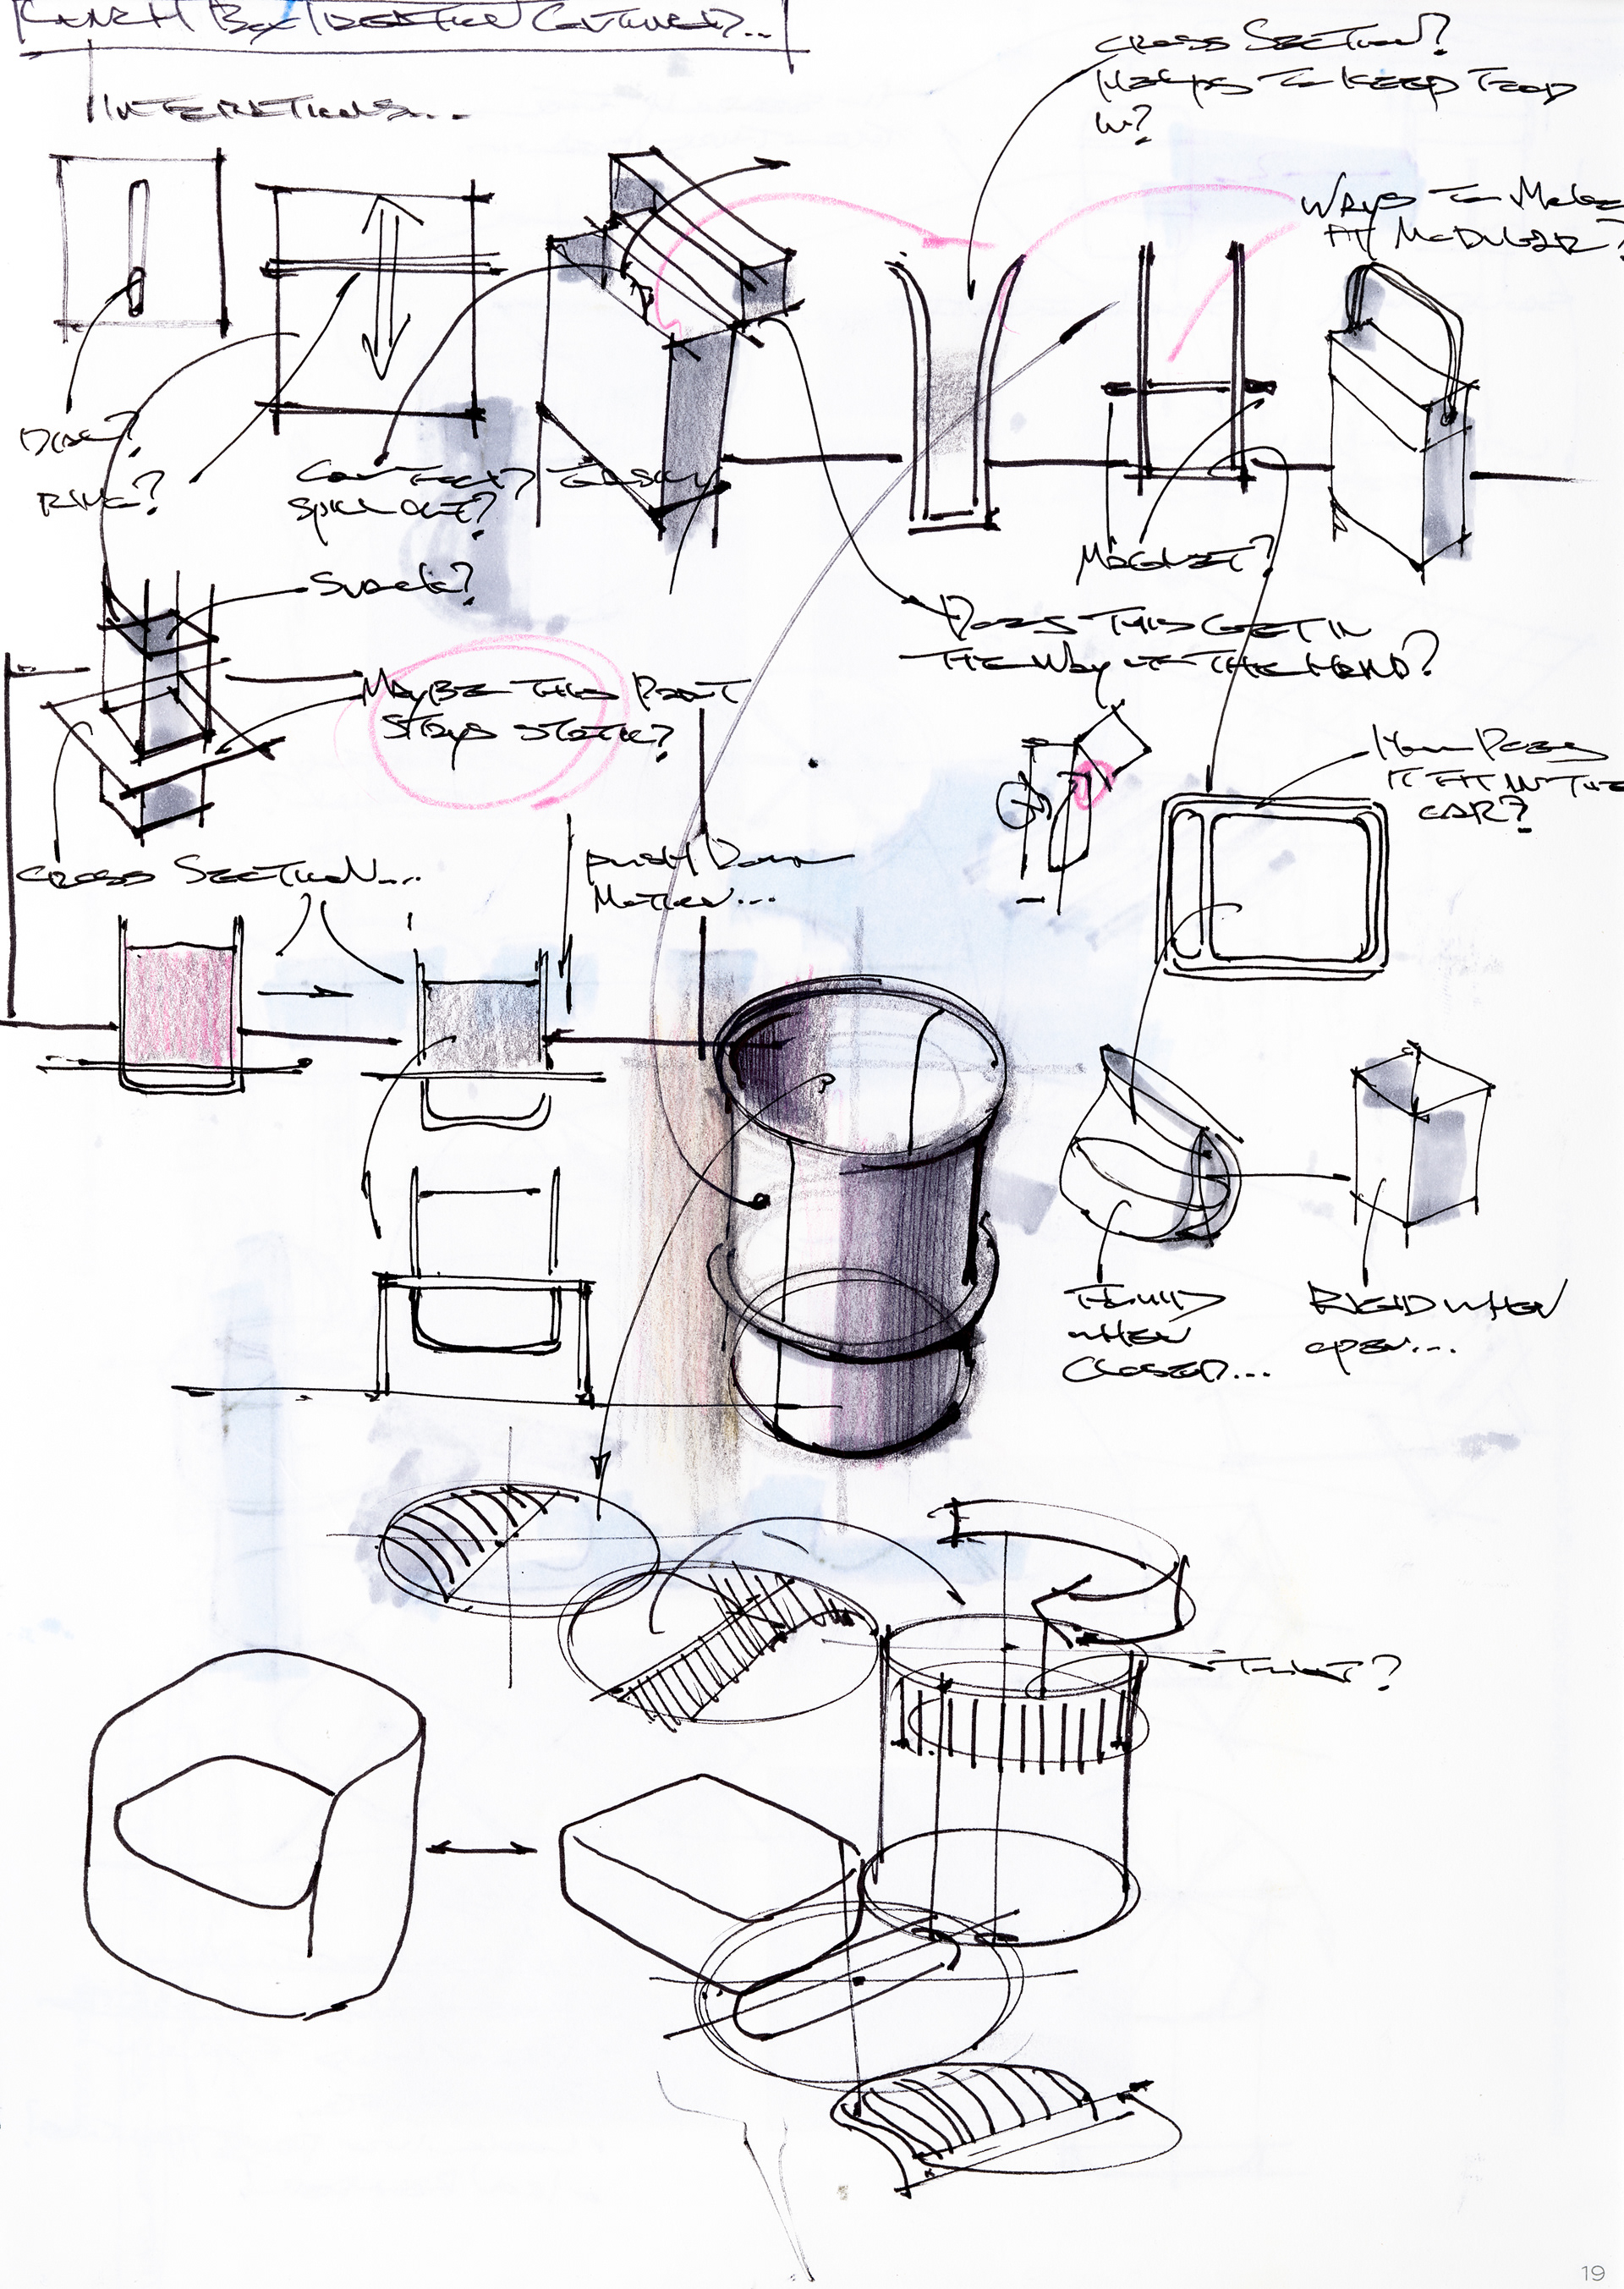 LUNCH BOX IDEATION CONTINUED...
INTERATIONS...
CROSS SECTION?
HELPS TO KEEP FOOD
IN?
WAYS TO MAKE
IT MODULAR?
DIAL?
RING?
CAN FOOD EASILY
SPILL OUT?
MAGNET?
SNACK?
DOES THIS GET IN
THE WAY OF THE HAND?
MAYBE THIS PART
STAYS STATIC?
HOW DOES
IT FIT IN THE
CAR?
CROSS SECTION...
PUSH DOWN
MOTION...
FLUID
WHEN
CLOSED...
RIGID WHEN
OPEN...
TWIST?
19